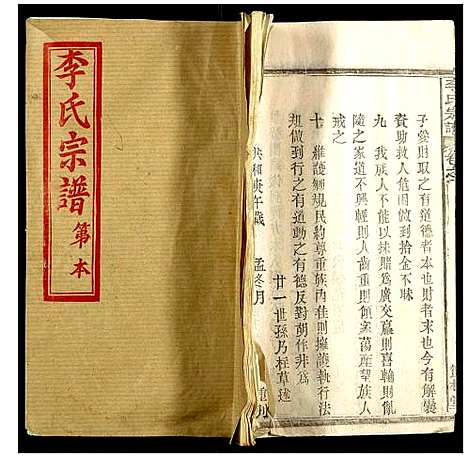 李氏宗譜
第 本
李氏宗譜
子愛財取之有道德者本也財者末也今有解囊
資助救人危困做到拾金不昧
九 我族人不能以抹賭為廣交贏則喜輸則亂
隨之家道不興輕則人傾家蕩產望族人
戒之
十 維護鄉規民約尊重族內准則擁護執行法
規做到行之有道動之有德反對胡作非為
廿一世孫乃 草述
共和庚午歲 孟冬月